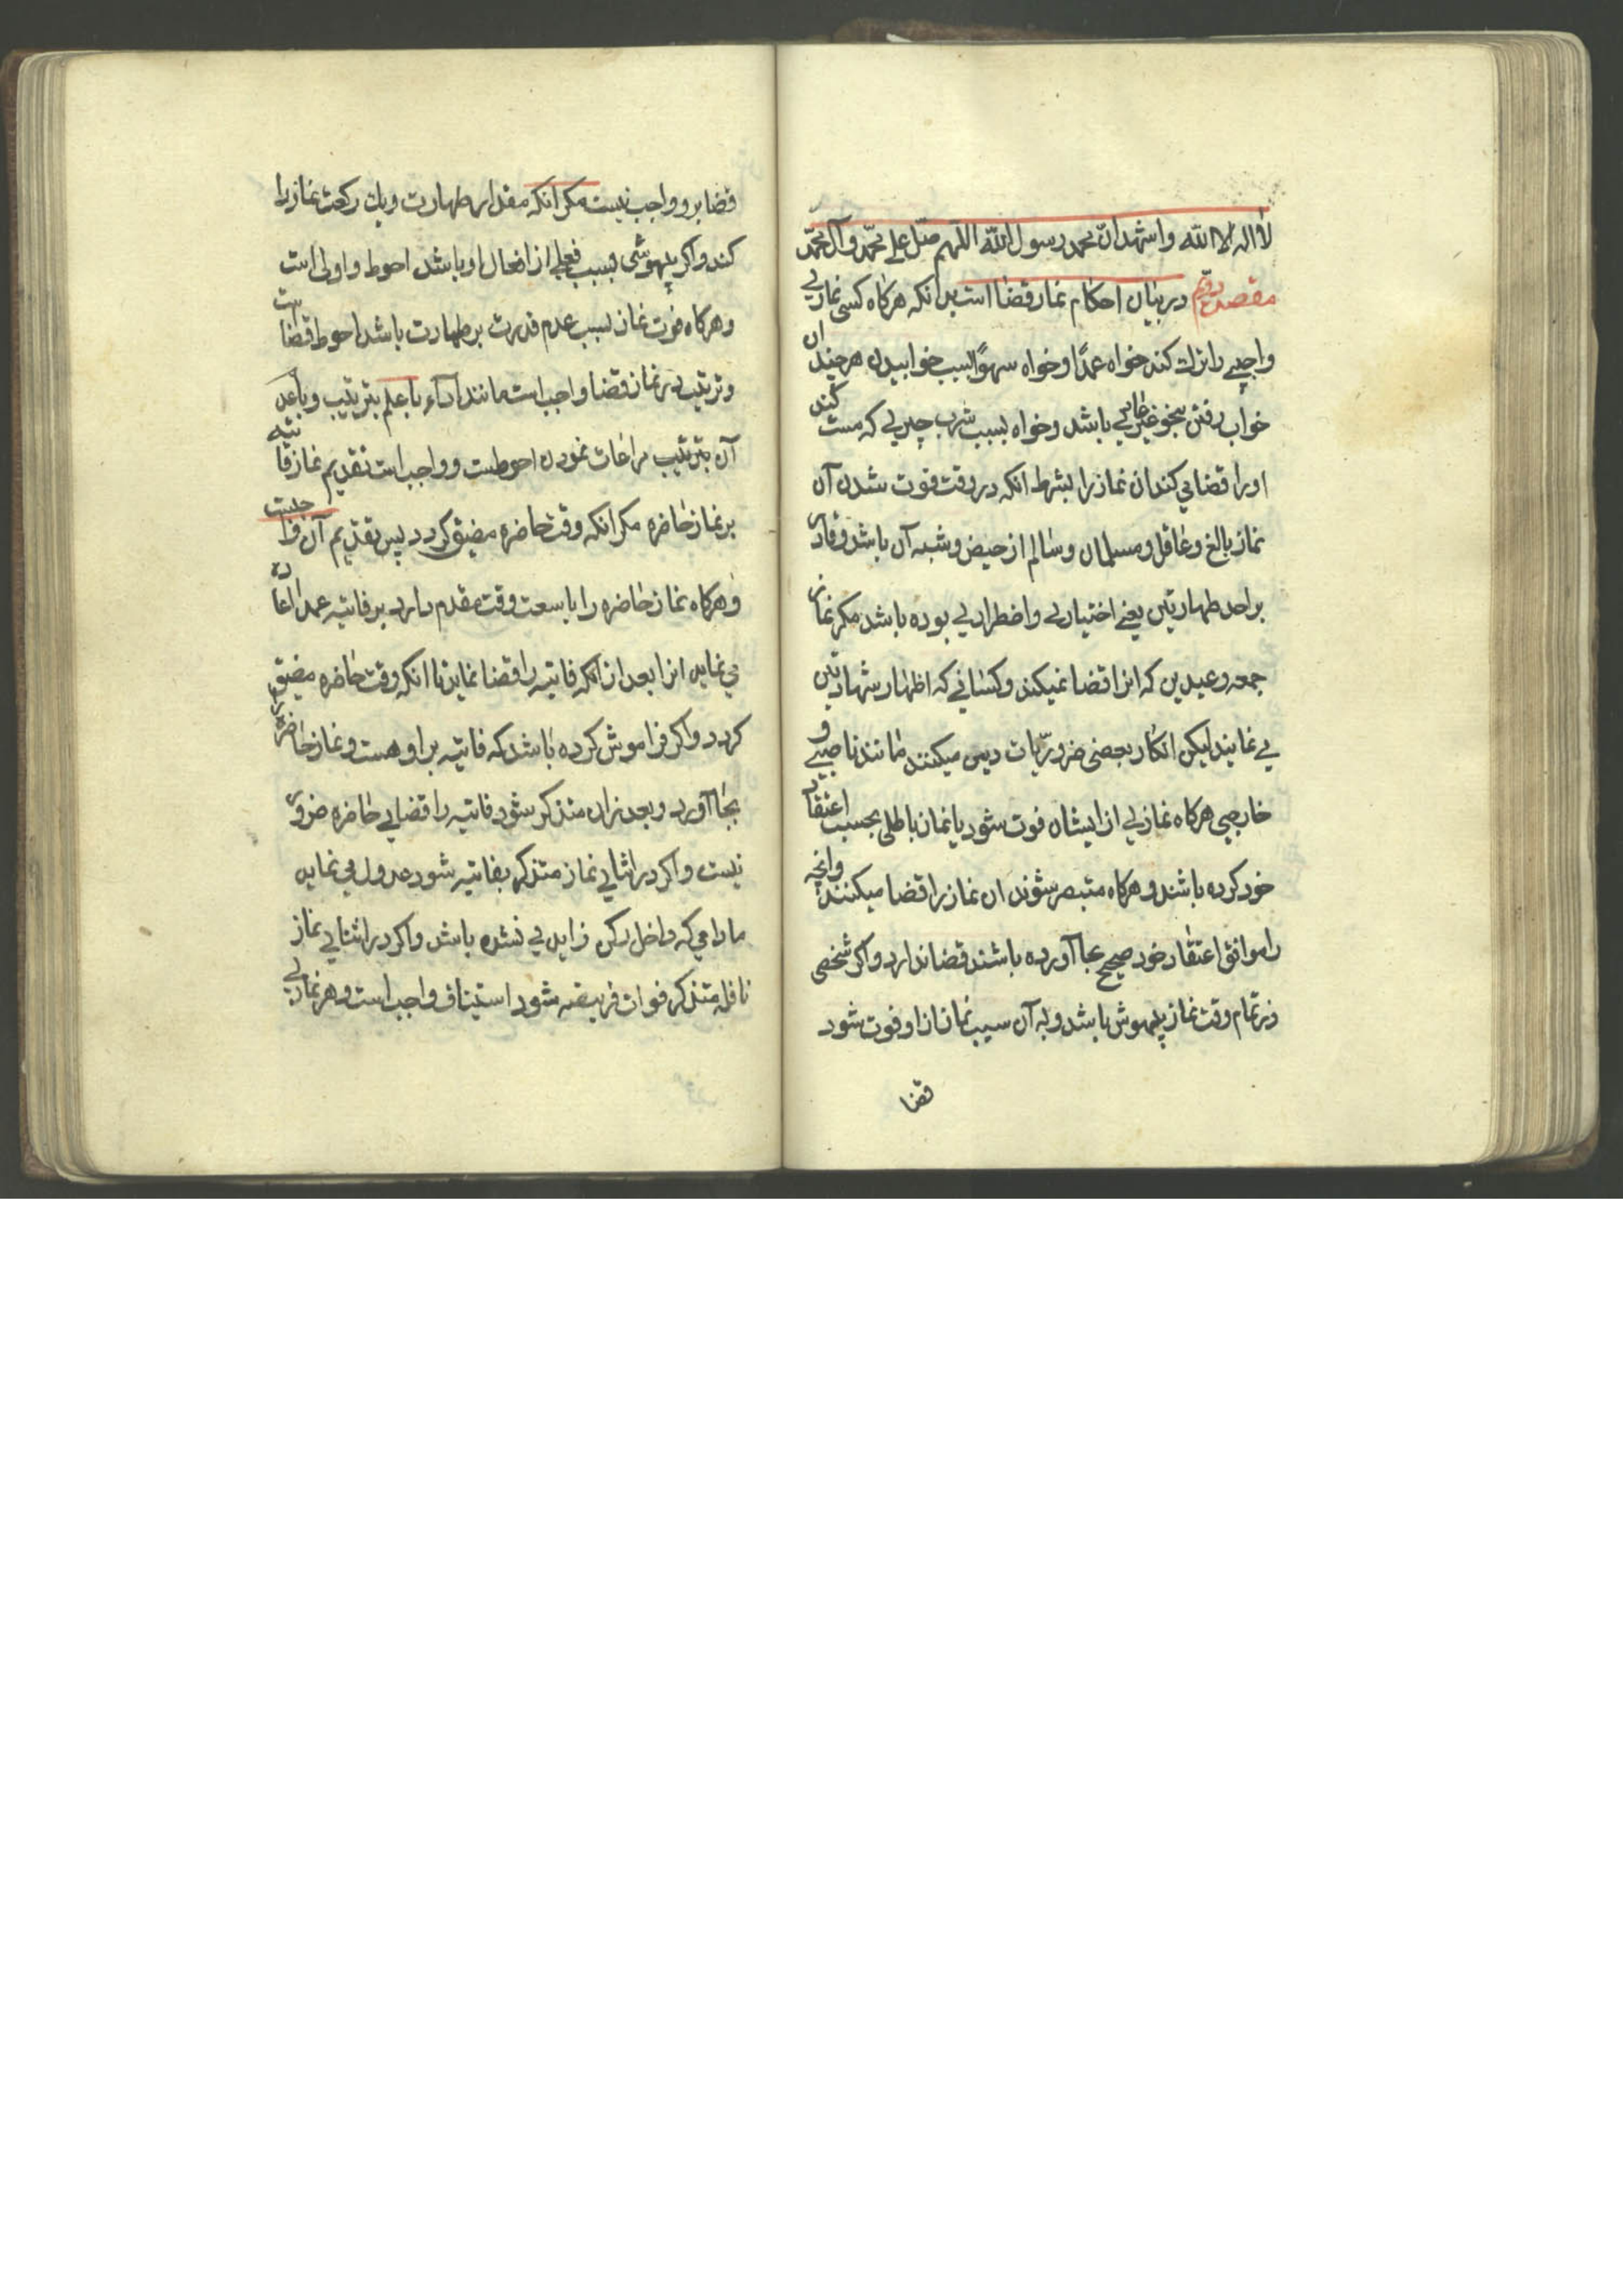 لا اله الا الله و اشهد ان محمد رسول الله اللهم صل علی محمد و آل محمد
مقصد دویم در بیان احکام نماز قضا است بدانکه هرکاه کسی نمازی
واجبی را ترك کند خواه عمدًا و خواه سهوًا بسبب خوابیدن هرچند ان
خواب رفتن بنحو غیر عادی باشد و خواه بسبب شرب چیزی که مست کند
او را قضا می کند ان نماز را بشرط انکه در وقت فوت شدن آن
نماز بالغ و عاقل و مسلمان و سالم از حیض و شبه آن باشد و قادر
بر احد طهارتین یعنی اختیاری و اضطراری بوده باشد مکر نماز
جمعه و عیدین که انرا قضا نمیکند و کسانی که اظهار شهادتین
می نمایند لیکن انکار بعضی ضروریّات دین میکنند مانند ناصبی و
خارجی هرکاه نمازی از ایشان فوت شود یا نماز باطلی بحسب اعتقاد
خود کرده باشند و هرکاه متبصر شوند ان نماز را قضا میکنند و انچه
را موافق اعتقاد خود صحیح بجا آورده باشند قضا ندارد و اکر شخصی
در تمام وقت نماز بیهوش باشد و به آن سبب نماز از او فوت شود
قضا
قضا برو واجب نیست مکر انکه مقدار طهارت و یك رکعت نماز را
کند و اکر بیهوشی بسبب فعلی از افعال او باشد احوط و اولی است
و هرکاه فوت نماز بسبب عدم قدرت بر طهارت باشد احوط قضاست
و ترتیب در نماز قضا واجب است مانند اداء با علم بترتیب و با عدم
آن بترتیب مراعات نمودن احوطست و واجب است تقدیم نماز فایته
بر نماز حاضره مکر انکه وقت حاضره مضیق کردد پس تقدیم آن واجبست
و هرکاه نماز حاضره را با سعت وقت مقدم دارد بر فایته عمدا اعاده
می نماید انرا بعد از انکه فایته را قضا نماید تا انکه وقت حاضره مضیق
کردد و اکر فراموش کرده باشد که فایته بر او هست و نماز حاضره را
بجا آورد و بعد از ان متذکر شود فایته را قضای حاضره ضرور
نیست و اکر در اثنای نماز متذکر بفایته شود عدول می نماید
مادامی که داخل رکن زایدی نشده باشد و اکر در اثنای نماز
نافله متذکر فوات فریضه شود استیناف واجب است و هر نمازی